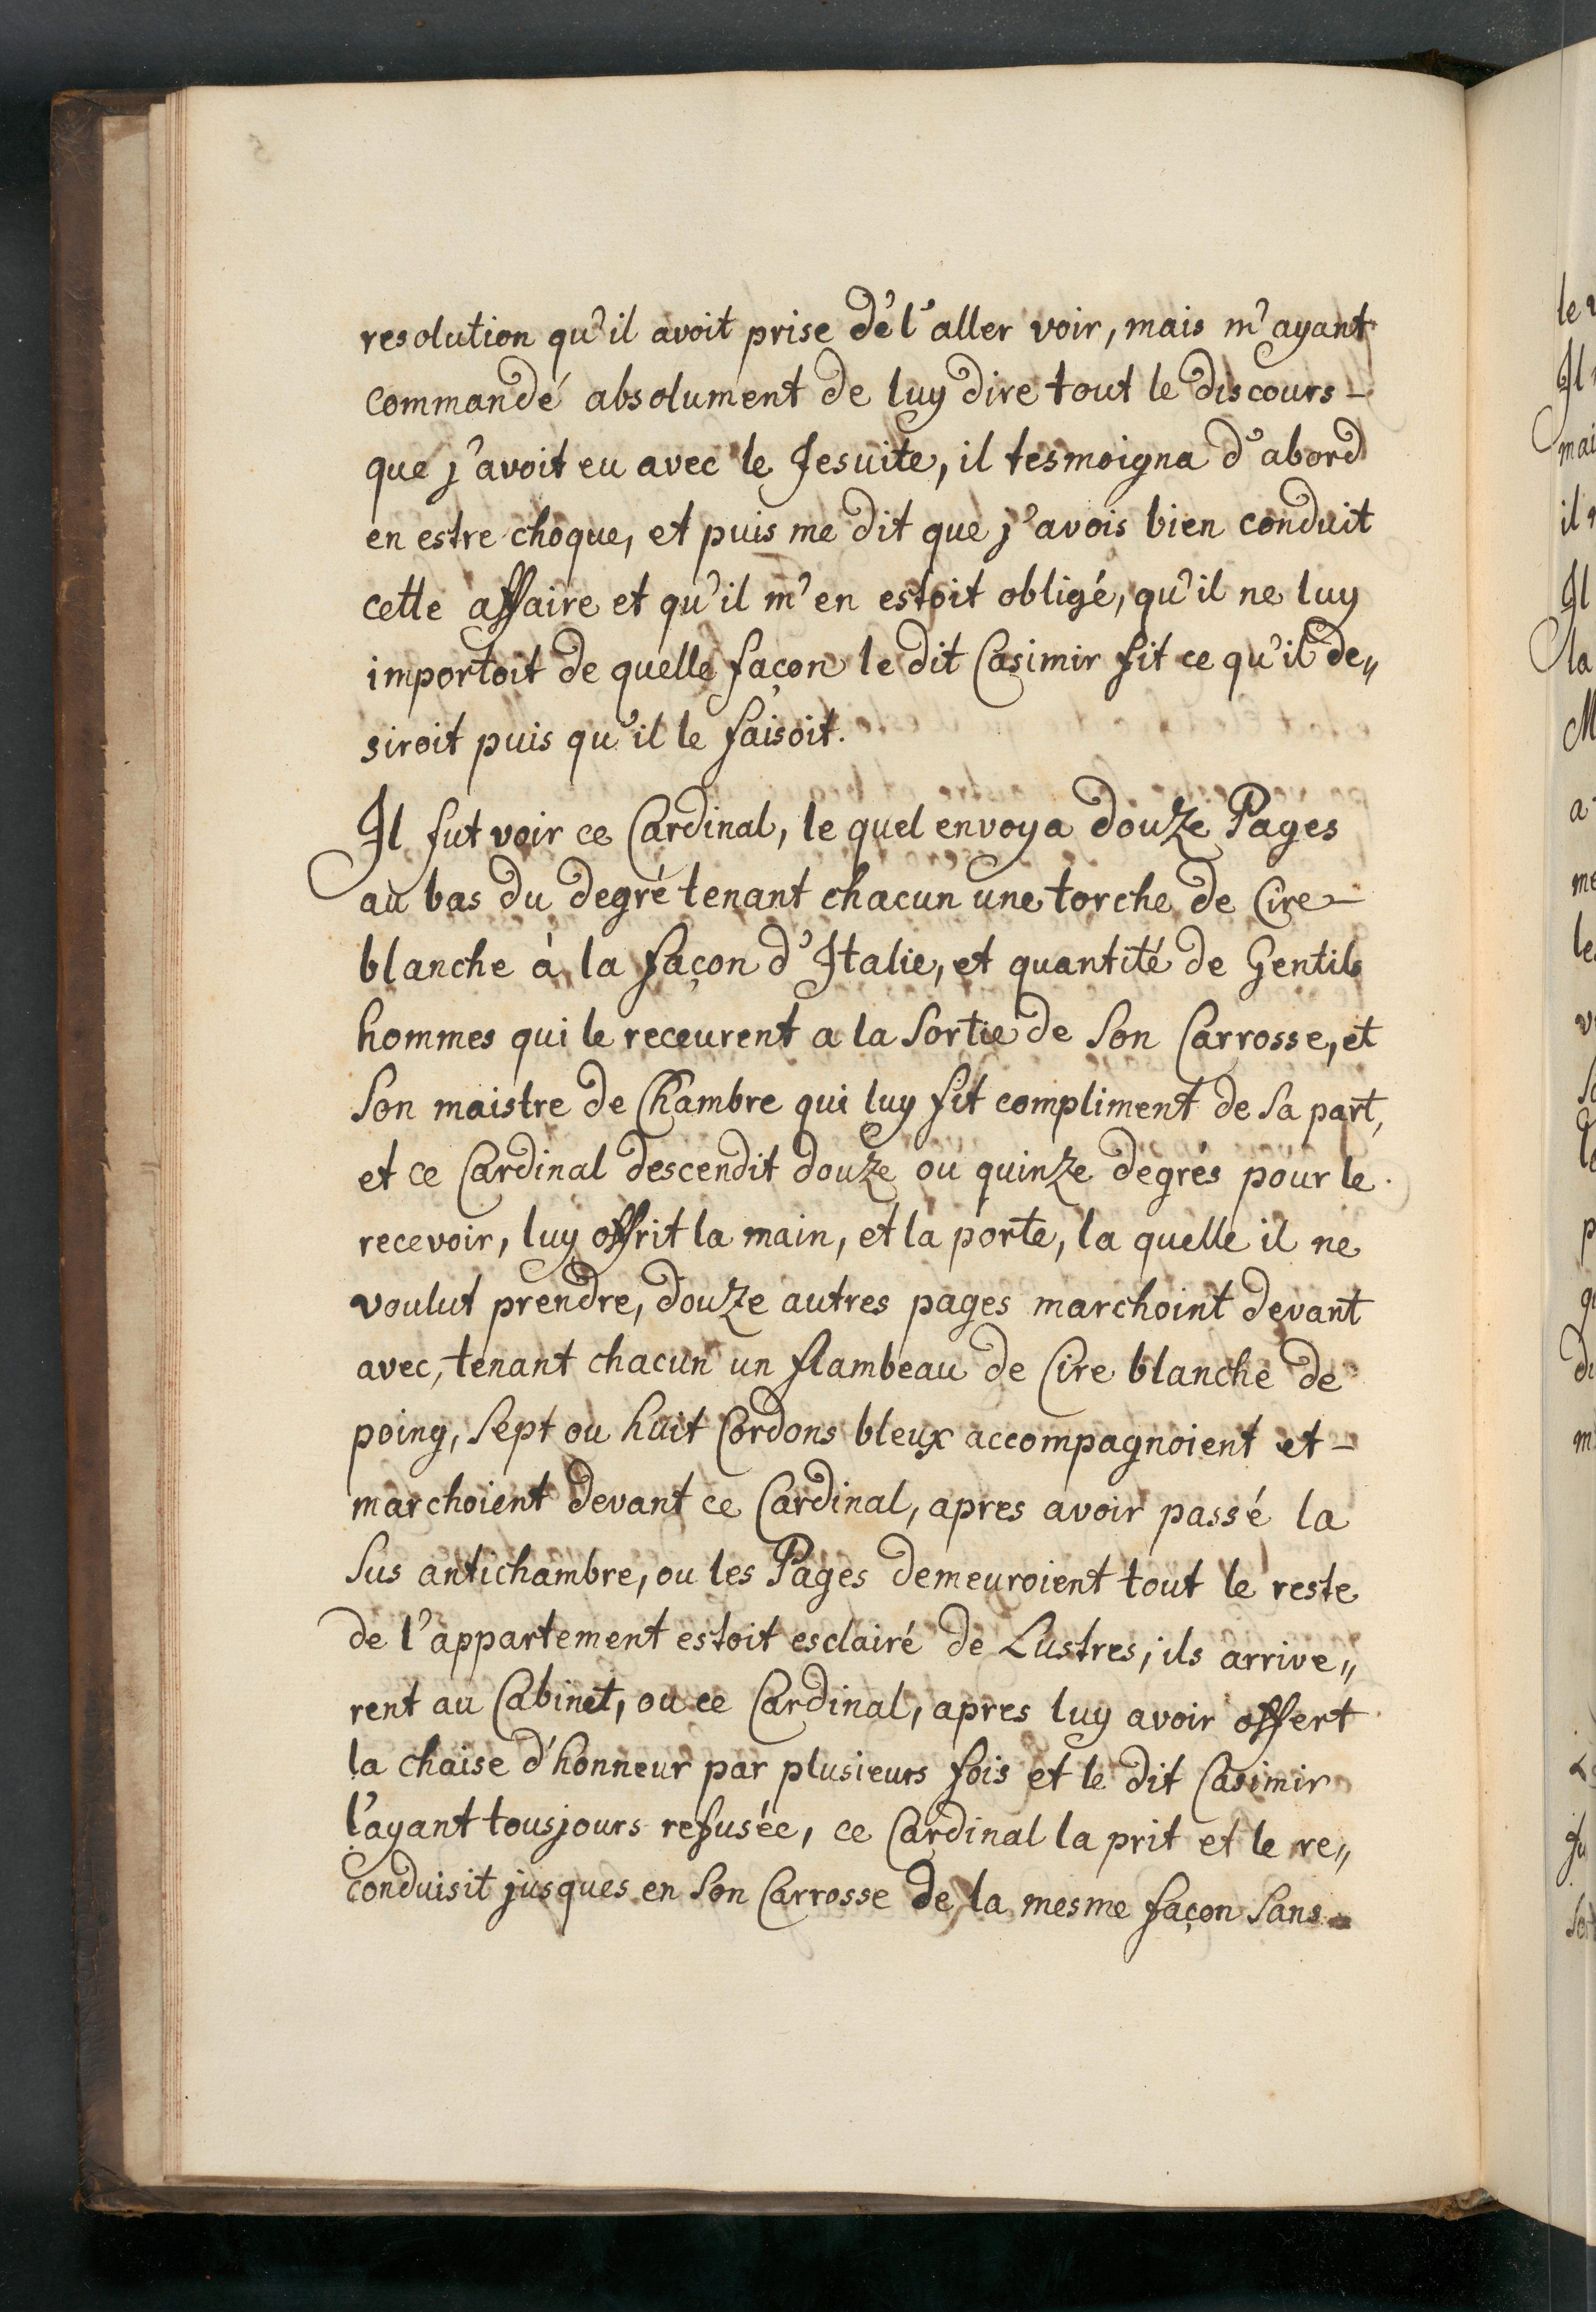 resolution qu'il avoit prise de l'aller voir, mais m'ayant
commandé absolument de luy dire tout le discours -
que j'avoit eu avec le Jesuite, il tesmoigna d'abord
en estre choque, et puis me dit que j'avois bien conduit
cette affaire et qu'il m'en estoit obligé, qu'il ne luy
importoit de quelle façon le dit Casimir fit ce qu'il de„
siroit puis qu'il le faisoit.
Il fut voir ce Cardinal, le quel envoya douze Pages
au bas du degré tenant chacun une torche de Cire -
blanche à la façon d'Italie, et quantité de Gentils
hommes qui le receurent a la sortie de son Carrosse, et
son maistre de Chambre qui luy fit compliment de sa part,
et ce Cardinal descendit douze ou quinze degrés pour le
recevoir, luy offrit la main, et la porte, la quelle il ne
voulut prendre, douze autres pages marchoint devant
avec, tenant chacun un flambeau de Cire blanche de
poing, sept ou huit Cordons bleux accompagnoient et -
marchoient devant ce Cardinal, apres avoir passé la
sus antichambre, ou les Pages demeuroient tout le reste
de l'appartement estoit esclairé de Lustres, ils arrive„
rent au Cabinet, ou ce Cardinal, apres luy avoir offert
la chaise d'honneur par plusieurs fois et le dit Casimir
l'ayant tousjours refusée, ce Cardinal la prit et le re„
conduisit jusques en son Carrosse de la mesme façon sans -